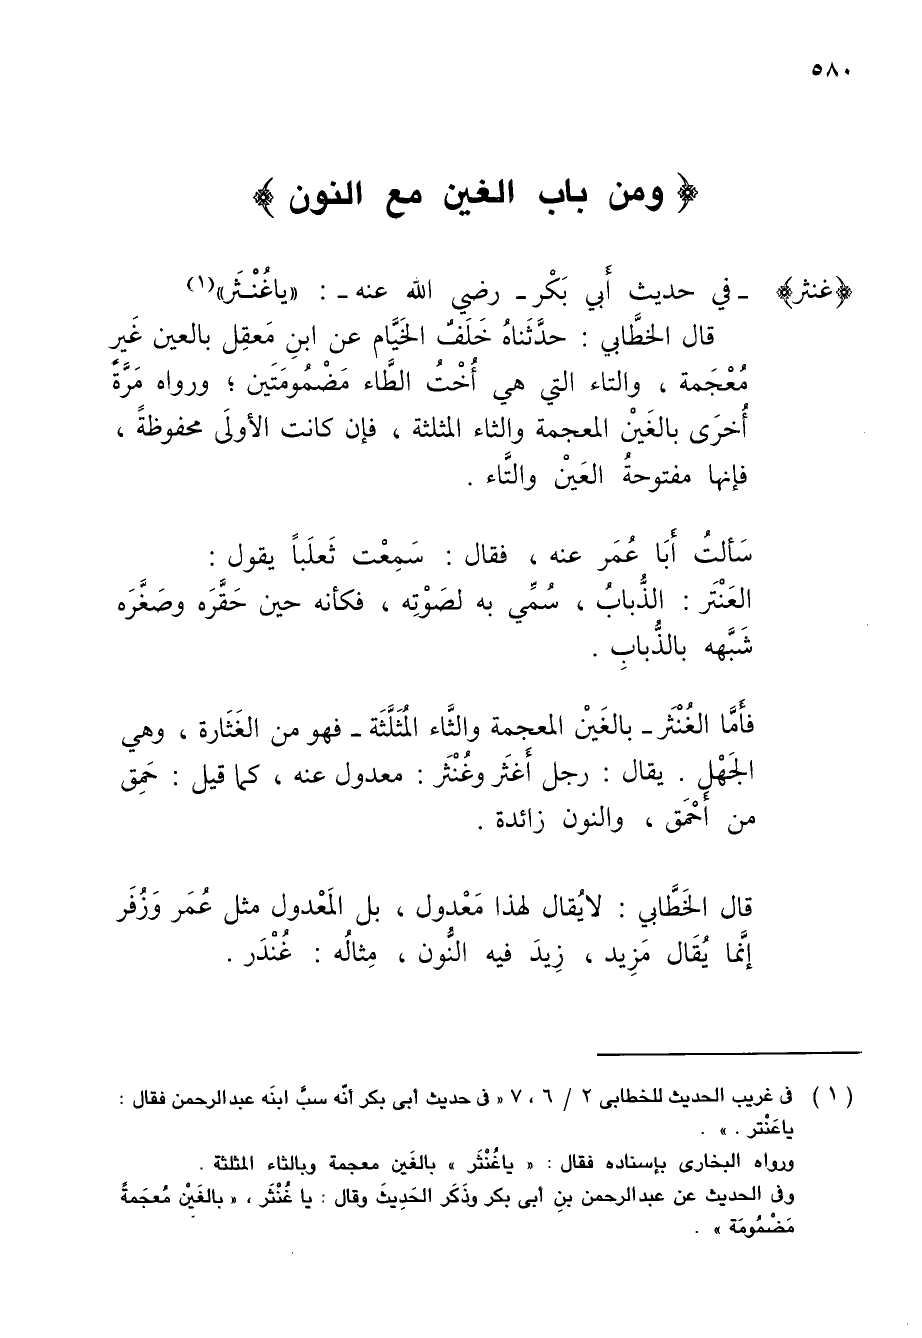 ٥٨٠
﴿ ومن باب الغين مع النون ﴾
﴿غنثر﴾ ـ في حديث أَبي بَكْر ـ رضي الله عنه ـ : «ياغُنْـثَر»(١)
قال الخطَّابي : حدَّثَناهُ خَلَفٌ الخَيَّام عن ابنِ مَعقِل بالعين غَيرِ
مُعْجَمة ، والتاء التي هي أُخْتُ الطَّاء مَضْمُومَتَين ؛ ورواه مَرَّةً
أُخرَى بالغَيْن المعجمة والثاء المثلثة ، فإن كانت الأولَى محفوظةً ،
فإنها مفتوحةُ العَيْن والتَّاء .
سَألتُ أَبَا عُمَر عنه ، فقال : سَمِعْت ثَعلَباً يقول :
العَنْتَر : الذُّبابُ ، سُمِّي به لصَوْتِه ، فكأنه حين حَقَّرَه وصَغَّرَه
شَبَّهه بالذُّبابِ .
فأَمَّا الغُنْثَر ـ بالغَيْن المعجمة والثَّاء المُثَلَّثَة ـ فهو من الغَثَارة ، وهي
الجَهْل . يقال : رجل أَغثَر وغُنْثَر : معدول عنه ، كما قيل : حَمِق
من أَحْمَق ، والنون زائدة .
قال الخَطَّابي : لايُقال لهذا مَعْدول ، بل المَعْدول مثل عُمَر وَزُفَر
إنَّما يُقَال مَزِيد ، زِيدَ فيه النُّون ، مِثالُه : غُنْدَر .
( ١ ) فى غريب الحديث للخطابى ٢ / ٦ ، ٧ « فى حديث أبى بكر أنّه سبَّ ابنَه عبدالرحمن فقال :
ياعَنْتر . » .
ورواه البخارى بإسناده فقال : « ياغُنْثَر » بالغَين معجمة وبالثاء المثلثة .
وفى الحديث عن عبدالرحمن بنِ أبى بكر وذَكَر الحَدِيثَ وقال : يا غُنْثَر ، « بالغَيْن مُعجَمةً
مَضْمُومَة » .